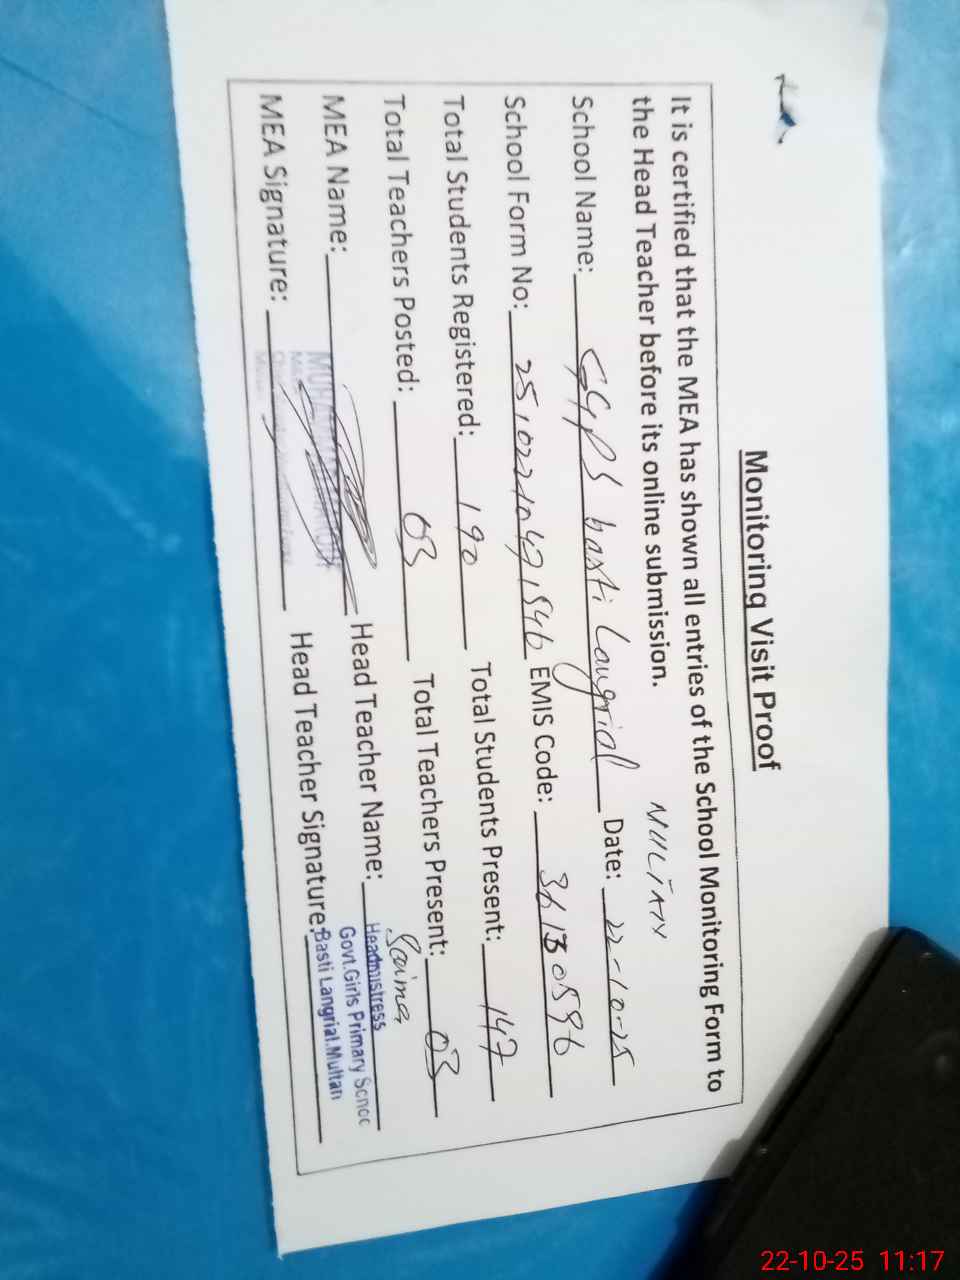 Monitoring Visit Proof
It is certified that the MEA has shown all entries of the School Monitoring Form to
the Head Teacher before its online submission.
School Name: GGPS basti Langrial Date: 22-10-25
School Form No: EMIS Code: 36130596
Total Students Registered: 190 Total Students Present: 147
Total Teachers Posted: 03 Total Teachers Present: 03
MEA Name: Head Teacher Name: Saima
Headmistress
MEA Signature: Head Teacher Signature:
Govt.Girls Primary Schoo
Basti Langrial.Multan
22-10-25 11:17